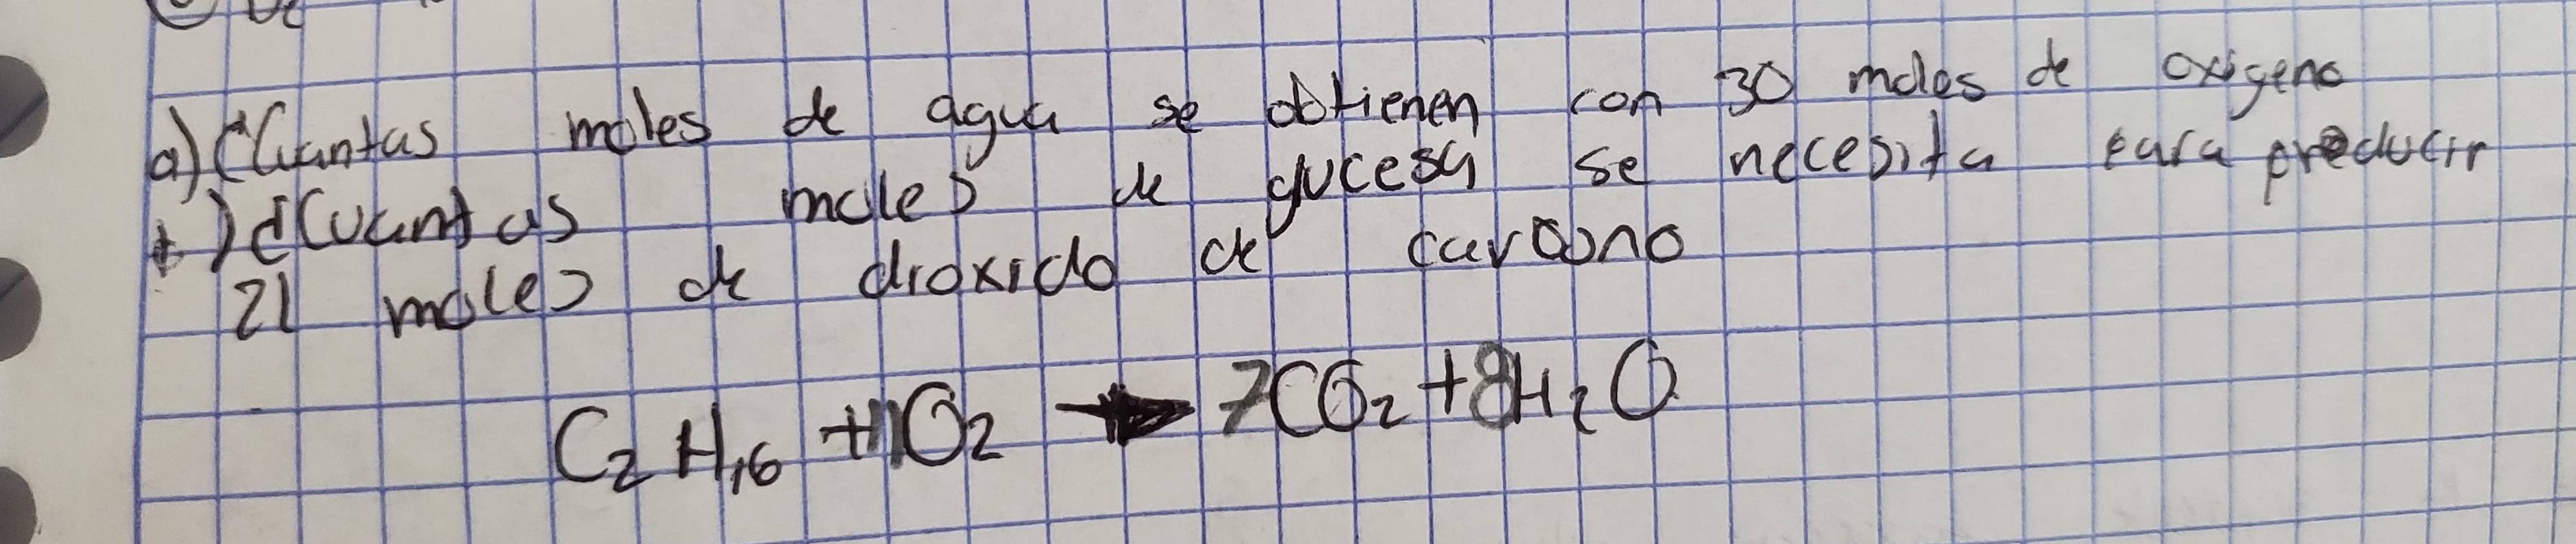 a) ¿Cuantas moles de agua se obtienen con 30 moles de oxigeno
) ¿Cuantas moles de glucosa se necesita para producir
21 moles de dioxido de carbono
C₂H₁₆ + 11O₂ → 7CO₂ + 8H₂O